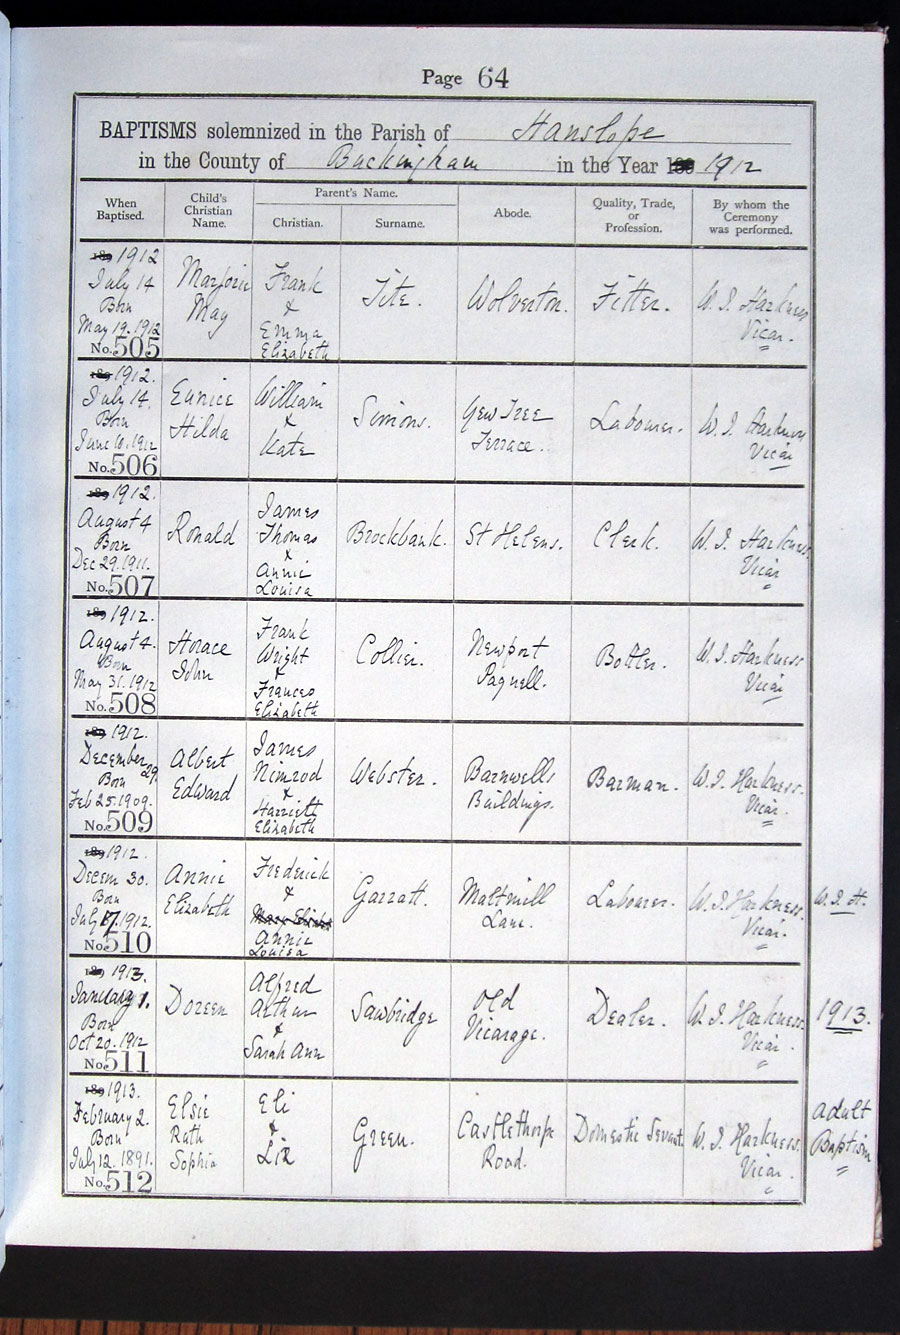 Page 64
BAPTISMS solemnized in the Parish of Hanslope
in the County of Buckingham in the Year 1912
When Baptised.
Child's Christian Name.
Parent's Name.
Christian.
Surname.
Abode.
Quality, Trade, or Profession.
By whom the Ceremony was performed.
189 1912
July 14
Born
May 19. 1912
No. 505
Marjorie
May
Frank
&
Emma
Elizabeth
Tite.
Wolverton.
Fitter.
W. J. Harkness
Vicar.
189 1912.
July 14.
Born
June 10. 1912
No. 506
Eunice
Hilda
William
&
Kate
Simons.
Yew Tree
Terrace.
Labourer.
W. J. Harkness
Vicar
189 1912.
August 4
Born
Dec 29. 1911.
No. 507
Ronald
James
Thomas
&
Annie
Louisa
Brockbank.
St Helens.
Clerk.
W. J. Harkness
Vicar
189 1912.
August 4.
Born
May 31. 1912
No. 508
Horace
John
Frank
Wright
&
Frances
Elizabeth
Collier.
Newport
Pagnell.
Bottler.
W. J. Harkness
Vicar
189 1912.
December 29.
Born
Feb 25. 1909.
No. 509
Albert
Edward
James
Nimrod
&
Harriett
Elizabeth
Webster.
Barnwells
Buildings.
Barman.
W. J. Harkness.
Vicar.
189 1912.
Decem 30.
Born
July 17. 1912.
No. 510
Annie
Elizabeth
Frederick
&
Annie
Louisa
Garratt.
Maltmill
Lane.
Labourer.
W. J. Harkness.
Vicar.
W. J. H.
189 1913.
January 1.
Born
Oct 20. 1912
No. 511
Doreen
Alfred
Arthur
&
Sarah Ann
Sawbridge
Old
Vicarage.
Dealer.
W. J. Harkness.
Vicar.
1913.
189 1913.
February 2.
Born
July 12. 1891.
No. 512
Elsie
Ruth
Sophia
Eli
&
Liz
Green.
Castlethorpe
Road.
Domestic Servant.
W. J. Harkness.
Vicar.
adult
Baptism